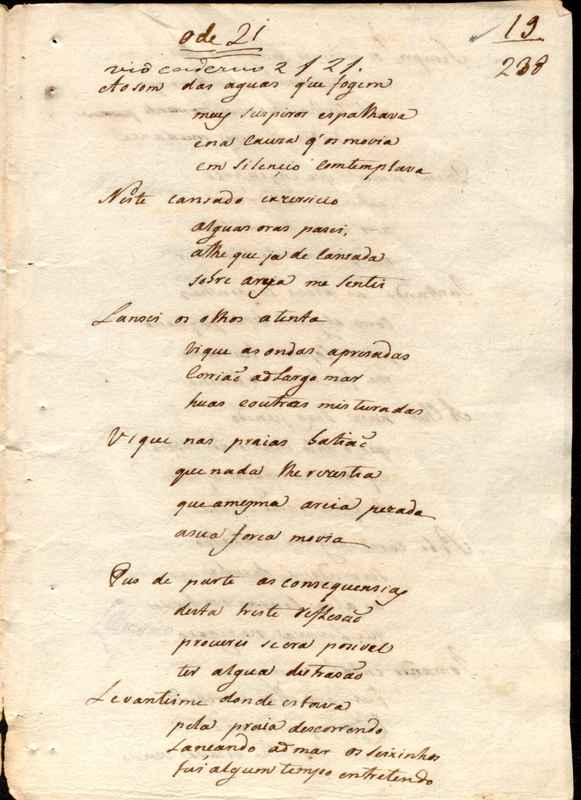 19
ode 21
238
vide caderno 2 f 21.
Ao som das aguas q'ue fogem
muy suspiros espalhava
e na cauza q'os movia
em silençio Comtemplava
Neste cansado exersicio
algũas oras pasei,
athe que ja de Cansada
sobre areja me sentei
Lansei os olhos atenta
vi que as ondas apresadas
Corriaõ ao Largo mar
huas e outras misturadas
Vi que nas praias batiaõ
que nada lhe rezestia
que a mesma areia pezada
a sua forca movia
Pus de parte as consequensias
desta triste reflesaõ
procurei se era posivel
ter algũa distrasaõ
Levanteime donde estava
pela praia descorrendo
Lancando ao mar os seixinhos
fui algum tempo entretendo